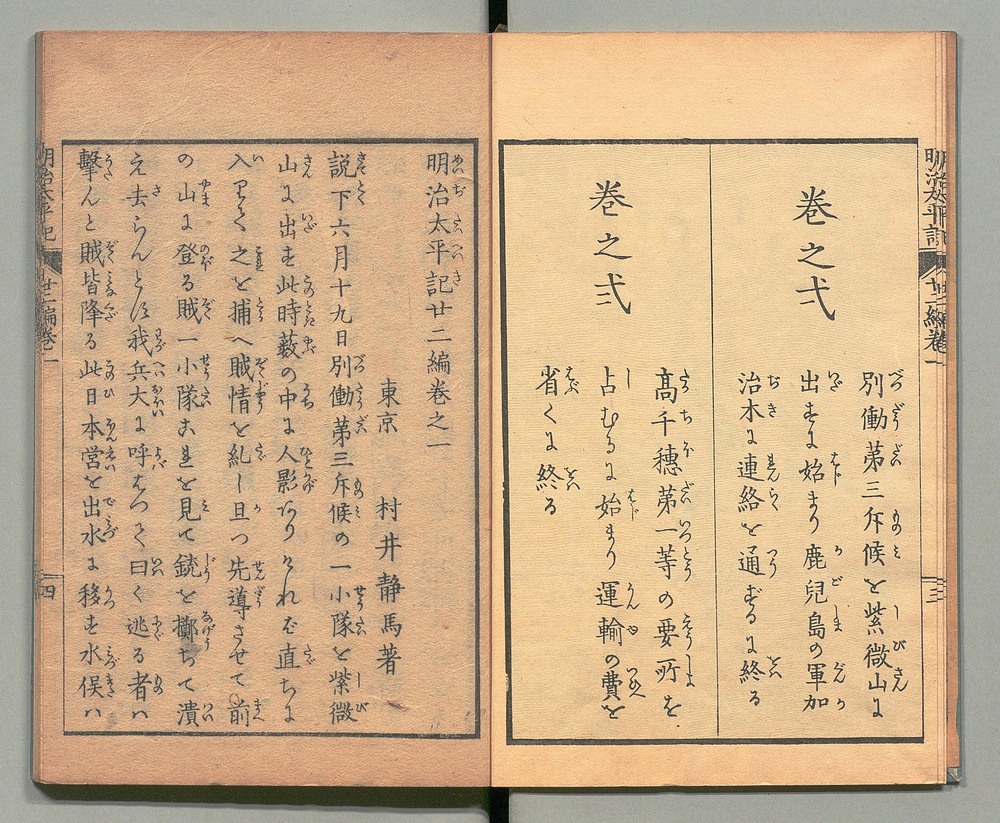 明治太平記 廿二編巻一
三
巻之弌
別働第三斥候を紫微山に
出すに始まり鹿児島の軍加
治木に連絡を通ずるに終る
巻之弍
高千穂第一等の要所を
占むるに始まり運輸の費を
省くに終る
明治太平記廿二編巻之一
東京 村井静馬著
説下六月十九日別働第三斥候の一小隊を紫微
山に出す此時藪の中に人影ありければ直ちに
入りて之を捕へ賊情を糺し且つ先導させて前
の山に登る賊一小隊これを見て銃を擲ちて潰
え去らんとす我兵大に呼はつて曰く逃る者ハ
撃んと賊皆降る此日本営を出水に移す水俣ハ
明治太平記 廿二編巻一
四